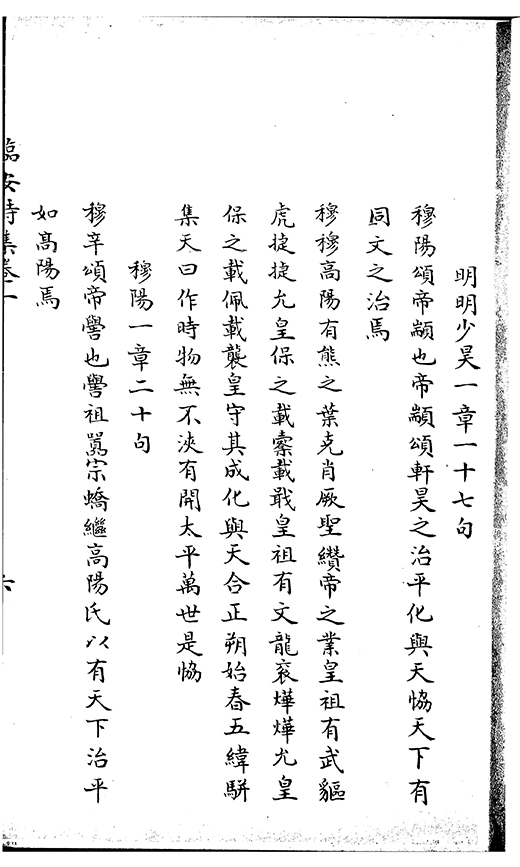 明明少昊一章一十七句
穆陽頌帝顓也帝顓頌軒昊之治平化與天恊天下有
同文之治焉
穆穆高陽有熊之葉克肖厥聖纘帝之業皇祖有武貙
虎捷捷允皇保之載櫜載戢皇祖有文龍衮燁燁允皇
保之載佩載襲皇守其成化與天合正朔始春五緯駢
集天曰作時物無不浹有開太平萬世是恊
穆陽一章二十句
穆辛頌帝嚳也嚳祖嚻宗蟜繼高陽氏以有天下治平
如高陽焉
臨安詩集卷一
六